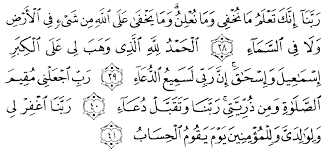 رَبَّنَآ إِنَّكَ تَعْلَمُ مَا نُخْفِى وَمَا نُعْلِنُ ۗ وَمَا يَخْفَىٰ عَلَى ٱللَّهِ مِن شَىْءٍ فِى ٱلْأَرْضِ
وَلَا فِى ٱلسَّمَآءِ ٣٨ ٱلْحَمْدُ لِلَّهِ ٱلَّذِى وَهَبَ لِى عَلَى ٱلْكِبَرِ
إِسْمَٰعِيلَ وَإِسْحَٰقَ ۚ إِنَّ رَبِّى لَسَمِيعُ ٱلدُّعَآءِ ٣٩ رَبِّ ٱجْعَلْنِى مُقِيمَ
ٱلصَّلَوٰةِ وَمِن ذُرِّيَّتِى ۚ رَبَّنَا وَتَقَبَّلْ دُعَآءِ ٤٠ رَبَّنَا ٱغْفِرْ لِى
وَلِوَٰلِدَىَّ وَلِلْمُؤْمِنِينَ يَوْمَ يَقُومُ ٱلْحِسَابُ ٤١